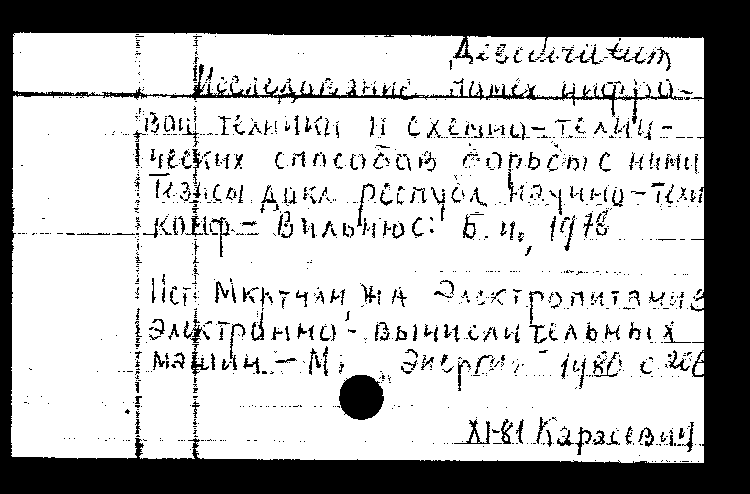 Исследование помех цифро-
вой техники и схемно-техни-
ческих способов борьбы с ними
Тезисы докл республ научно-техн
конф - Вильнюс: Б.и., 1978
Ист Мкртчян ЖА Электропитание
электронно-вычислительных
машин. - М: Энергия - 1980 с 206
XI-81 Карасевич